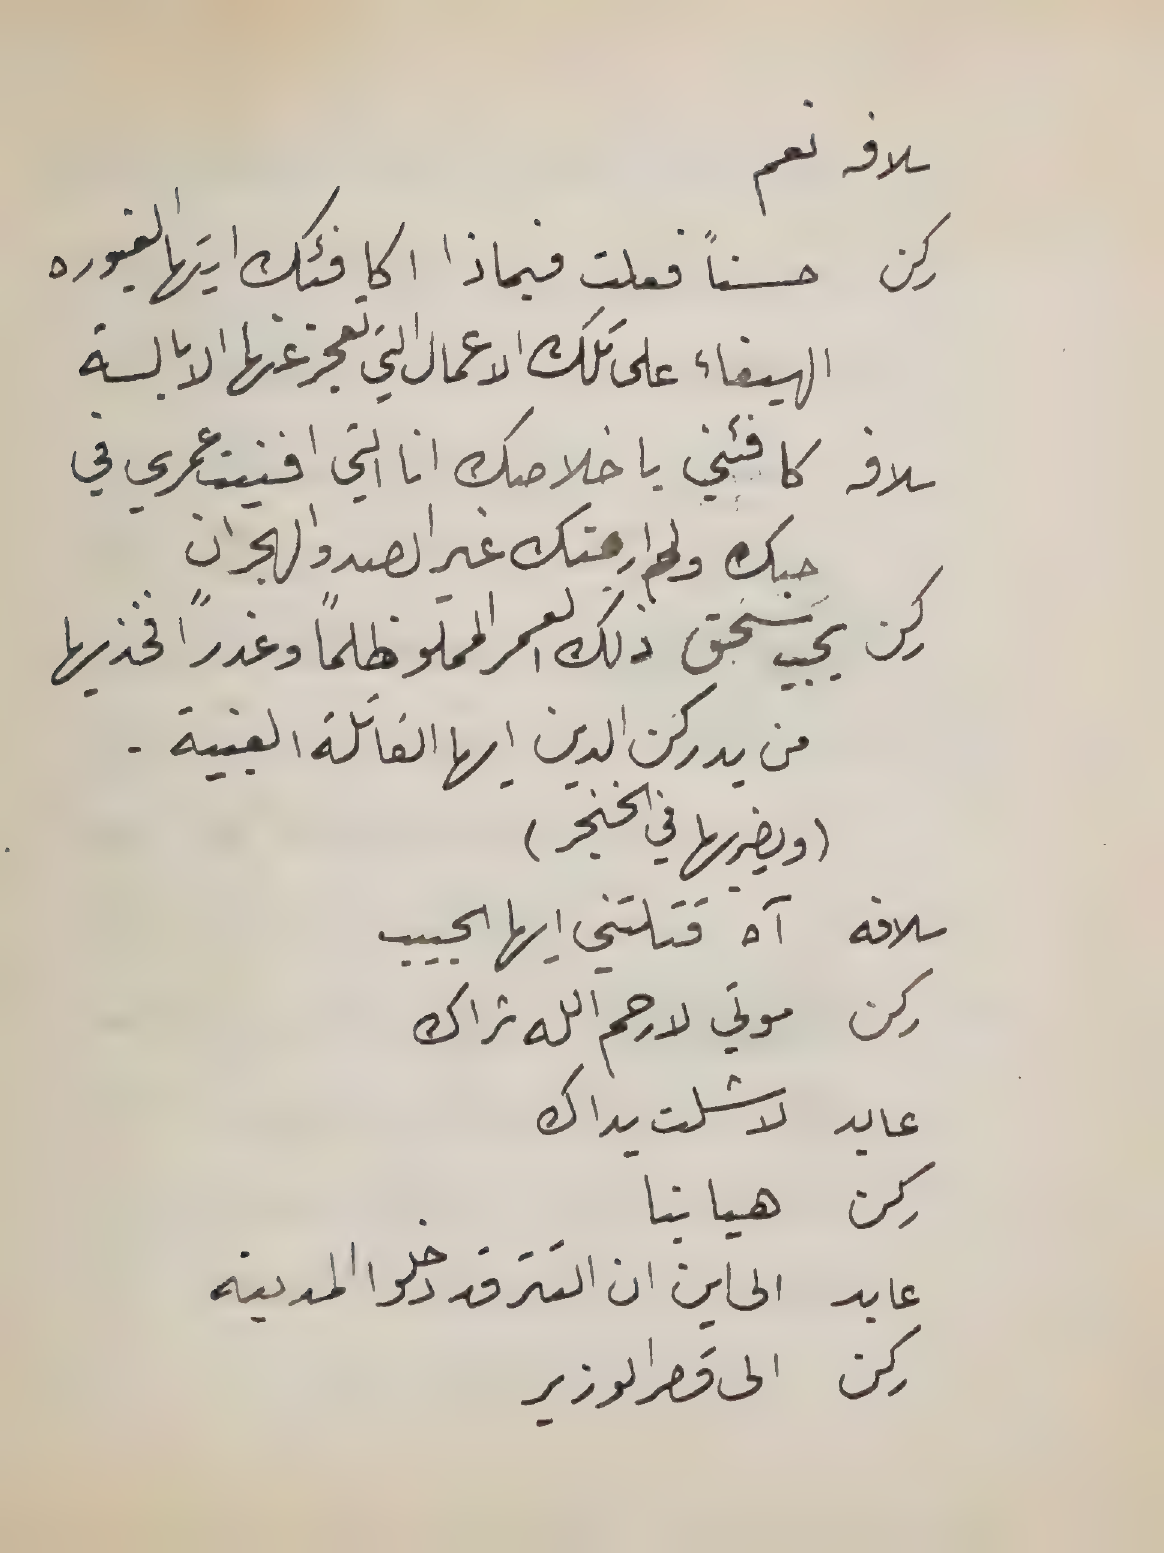 سلافه نعم
ركن حسناً فعلت فبماذا اكافئك ايتها الغيوره
الهيفاء على تلك الاعمال التي تعجز عنها الابالسة
سلافه كافئني باخلاصك انا التي افنيت عمري في
حبك ولم ار منك غير الصد والهجران
ركن يجب سنحق ذلك العمر المملو ظلماً وغدراً فخذيها
من يد ركن الدين ايها القاتلة الغبية -
(ويضربها في الخنجر)
سلافه آه قتلتني ايها الحبيب
ركن موتي لا رحم الله ثراك
عابد لا شلت يداك
ركن هيا بنا
عابد الى اين ان التتر قد دخلوا المدينه
ركن الى قصر الوزير